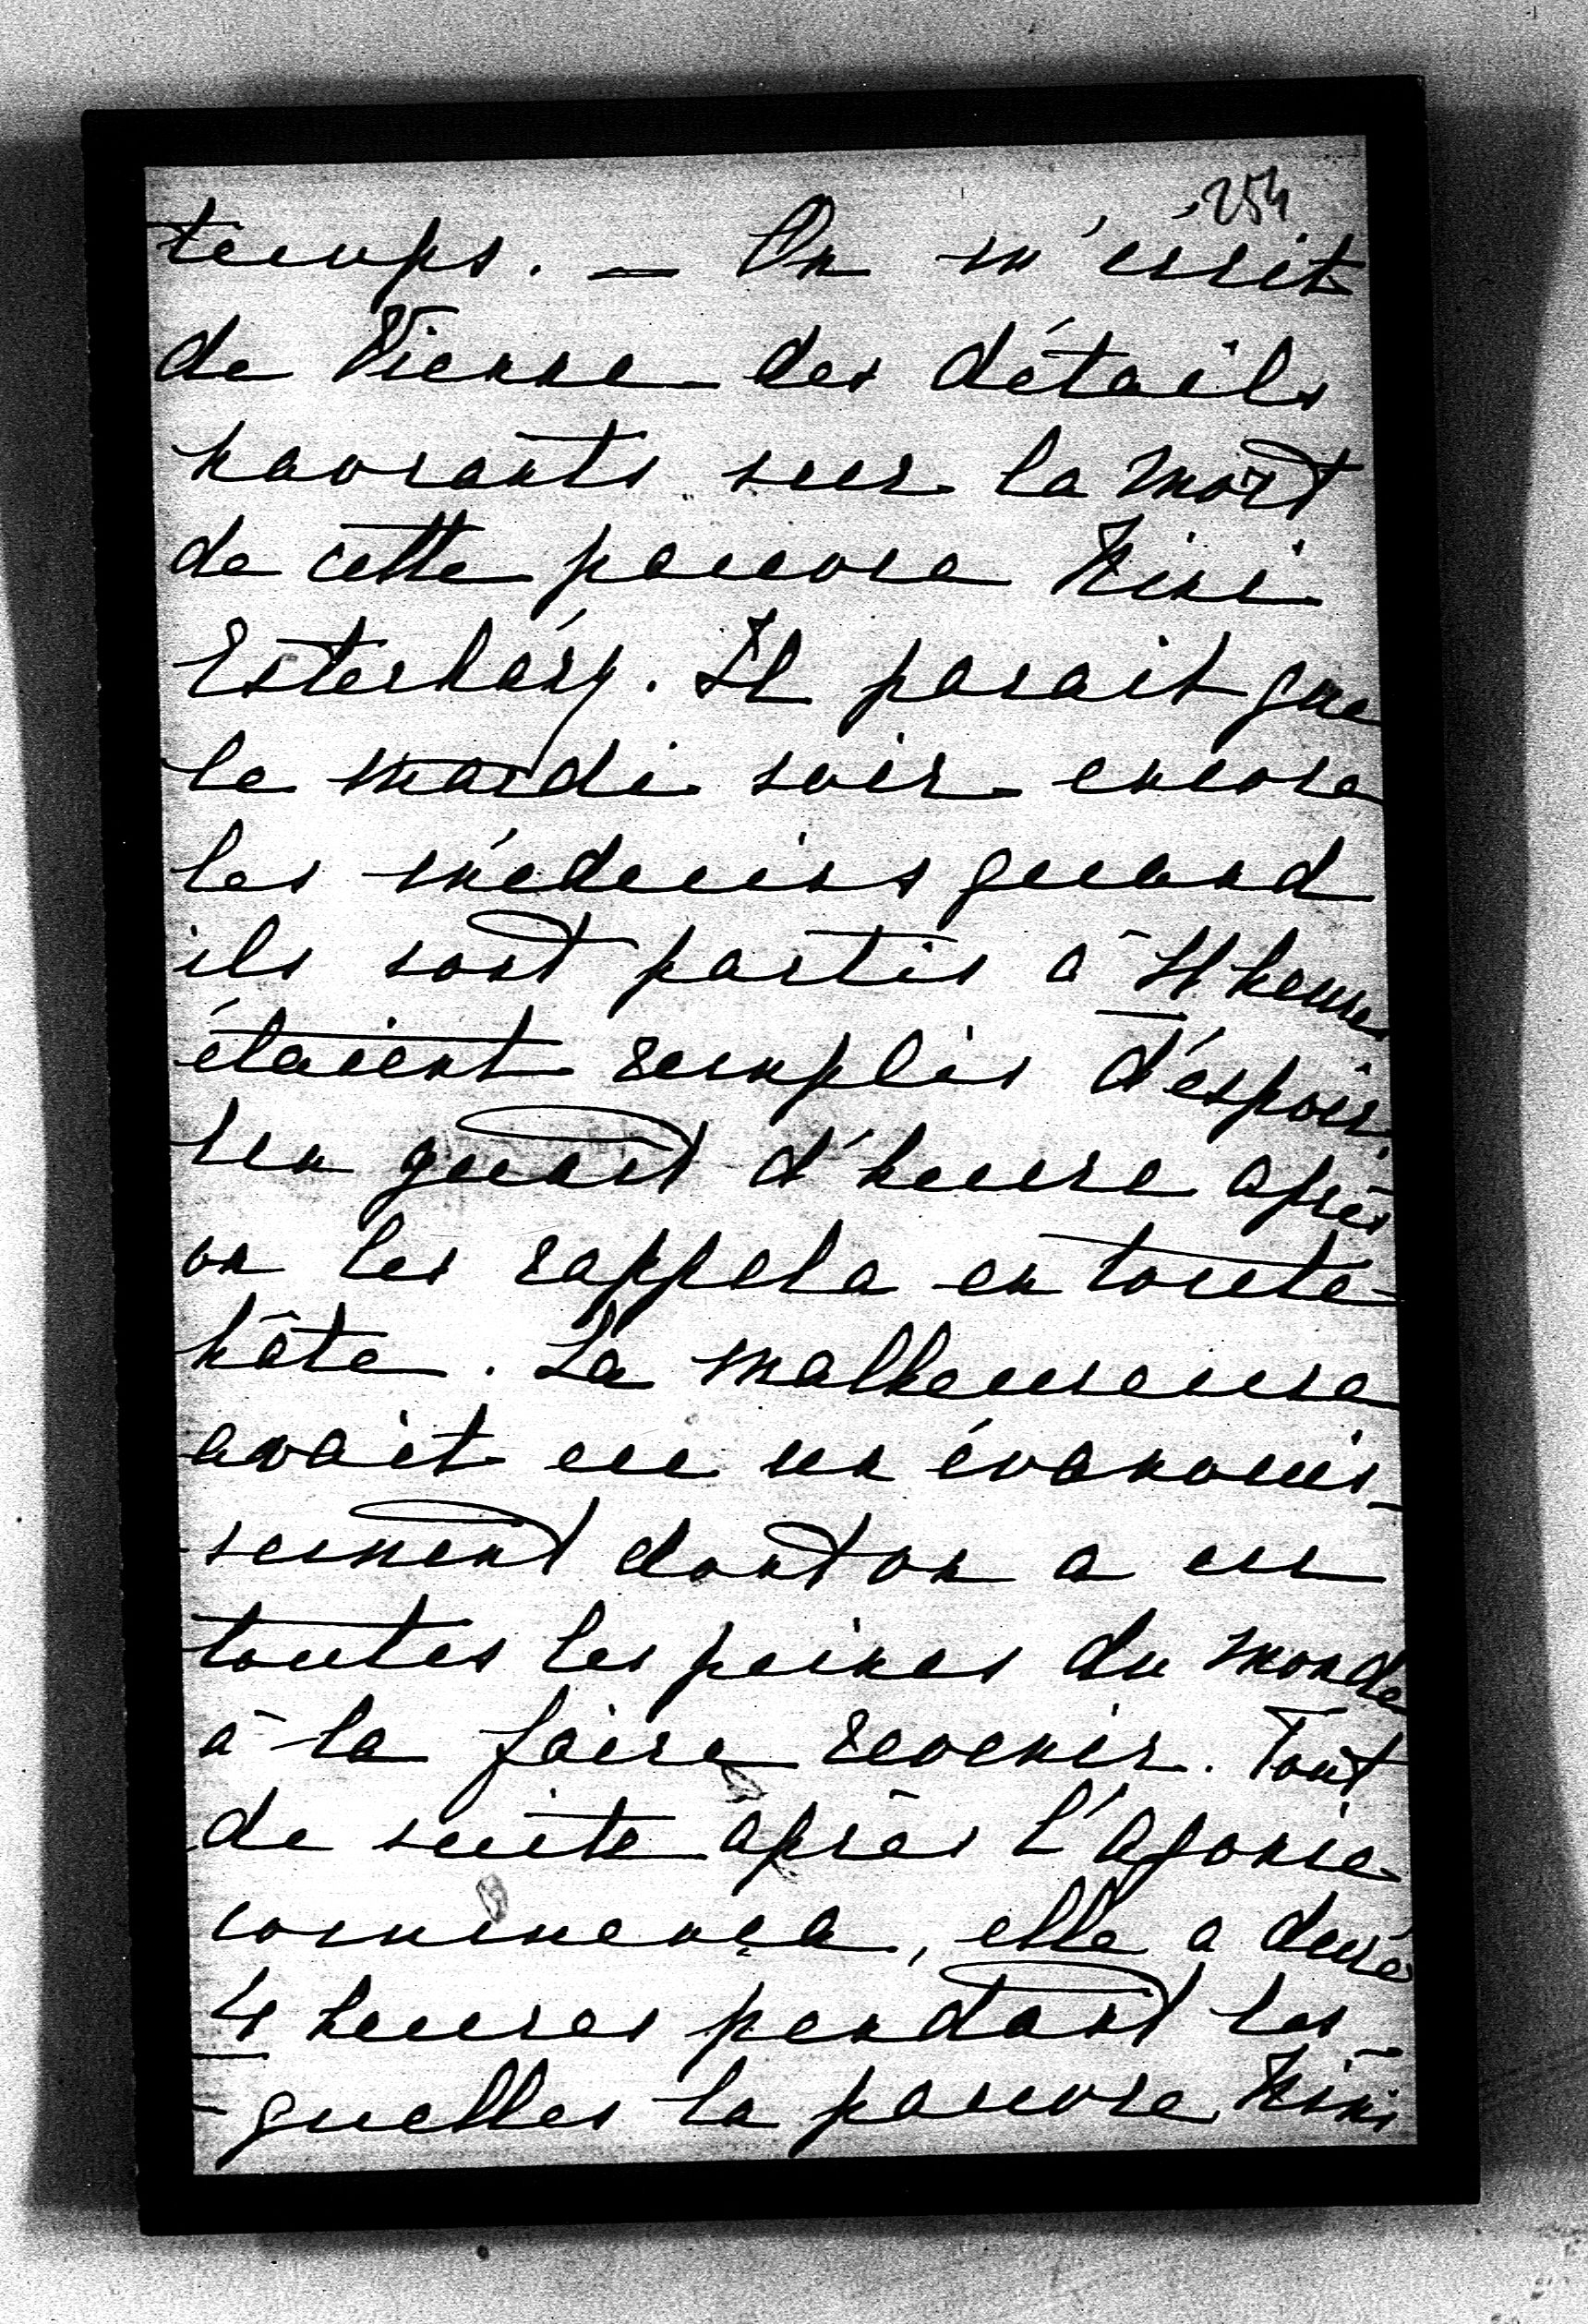 254
temps. — On m'écrit
de Vienne des détails
navrants sur la mort
de cette pauvre Nini
Esterházy. Il parait que
le mardi soir encore
les médecins quand
ils sont partis à 4 heures
étaient remplis d'espoir.
Un quart d'heure après
on les rappela en toute
hâte. La malheureuse
avait eu un évanouis-
sement dont on a eu
toutes les peines du monde
à la faire revenir. Tout
de suite après l'agonie
commença, elle a duré
4 heures pendant les-
-quelles la pauvre Nini